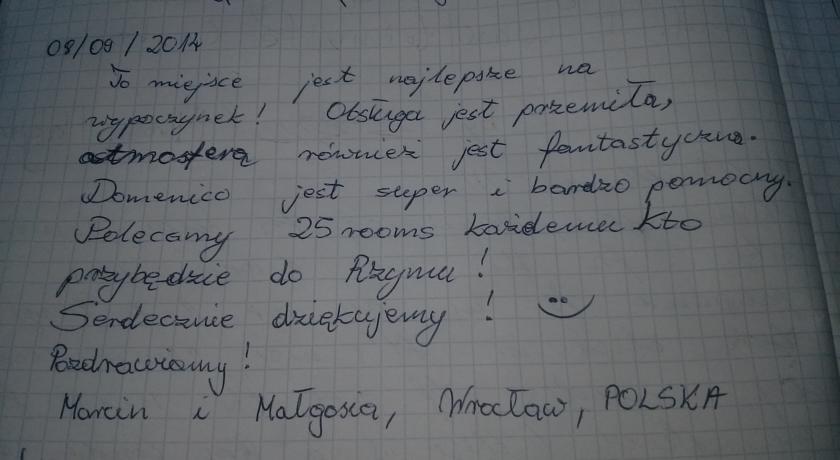 08/09/2014
To miejsce jest najlepsze na
wypoczynek! Obsługa jest przemiła,
atmosfera również jest fantastyczna.
Domenico jest super i bardzo pomocny.
Polecamy 25 rooms każdemu kto
przybędzie do Rzymu!
Serdecznie dziękujemy!
Pozdrawiamy!
Marcin i Małgosia, Wrocław, POLSKA